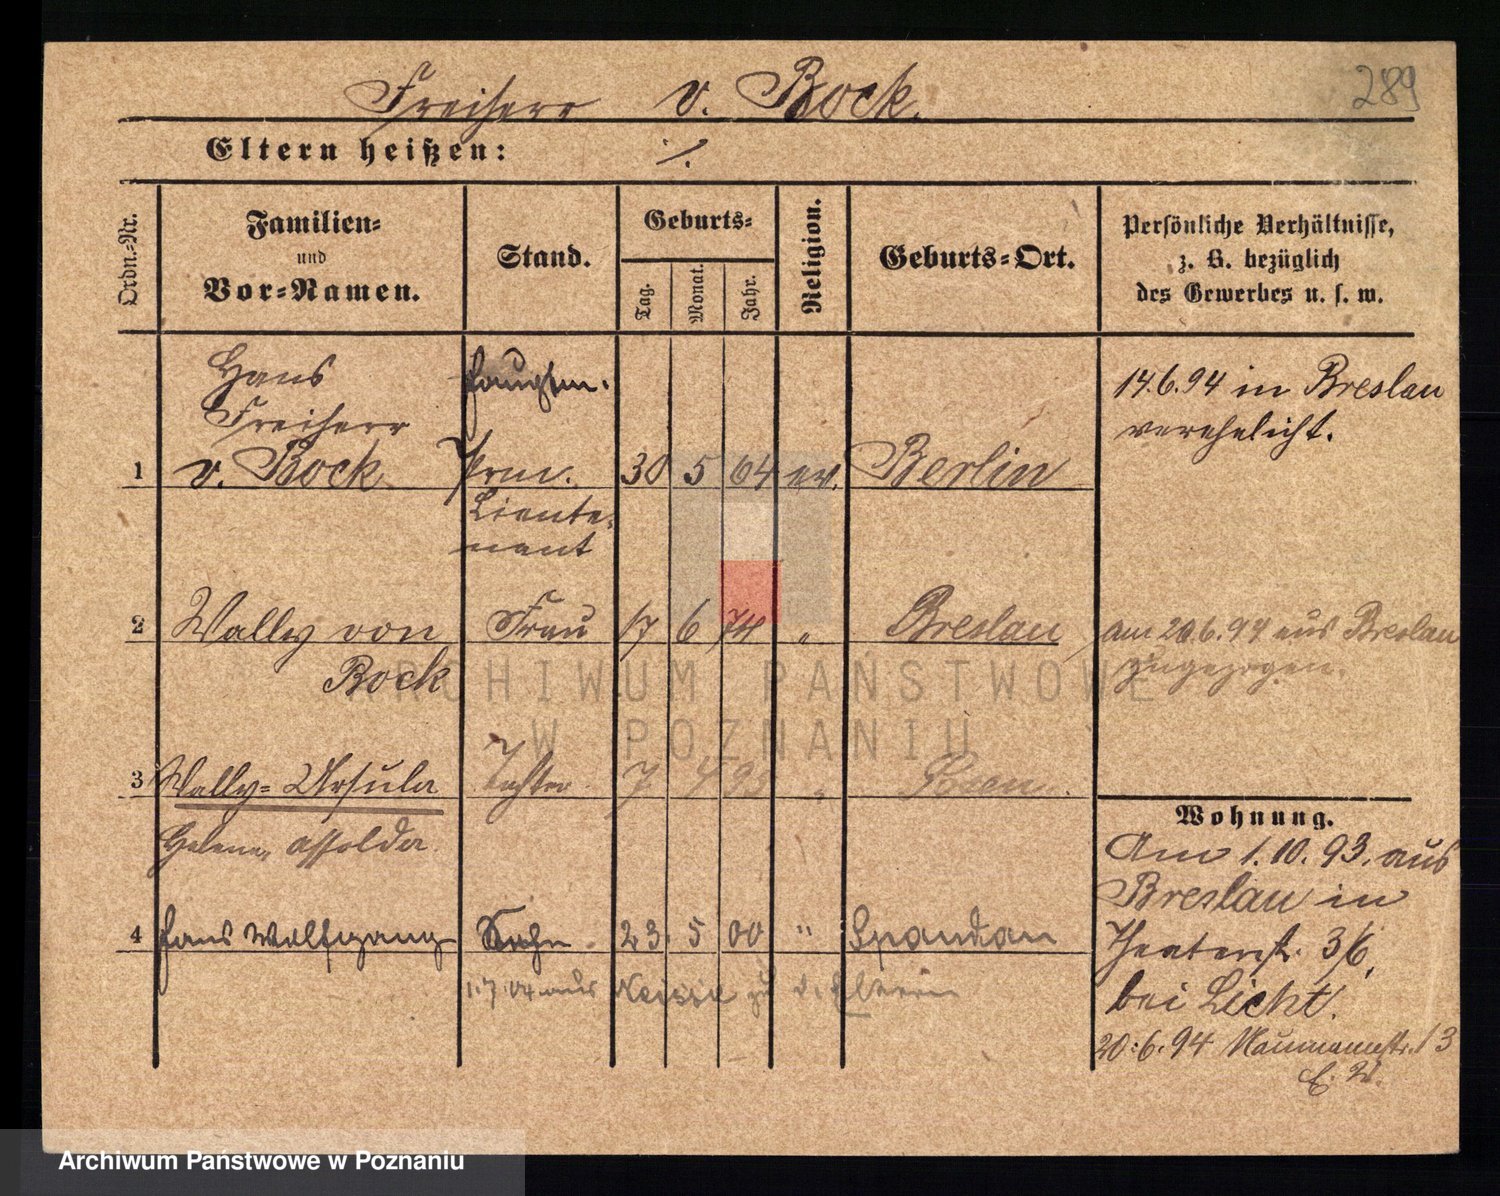 289
Freiherr v. Bock.
Eltern heißen: ./.
Ordn.=Nr.
Familien=
und
Vor=Namen.
Stand.
Geburts=
Tag.
Monat.
Jahr.
Religion.
Geburts=Ort.
Persönliche Verhältnisse,
z. B. bezüglich
des Gewerbes u. s. w.
Hans
Freiherr
1 v. Bock Prm. 30 5 64 ev. Berlin
Lieute-
nant
14.6.94 in Breslau
verehelicht.
2 Wally von Frau 17 6 74 " Breslau
Bock
am 20.6.94 aus Breslau
zugezogen.
3 Wally=Ursula Tochter 7 93 " Posen.
Helene,
4 Hans Wolfgang Sohn 23. 5 00 " Spandau
1.7.04 aus Neisse zu d. Eltern
Wohnung.
Am 1.10.93. aus
Breslau in
Theaterstr. 3/6,
bei Licht.
20.6.94 Naumannstr. 13
E. W.
ARCHIWUM PAŃSTWOWE
W POZNANIU
Archiwum Państwowe w Poznaniu